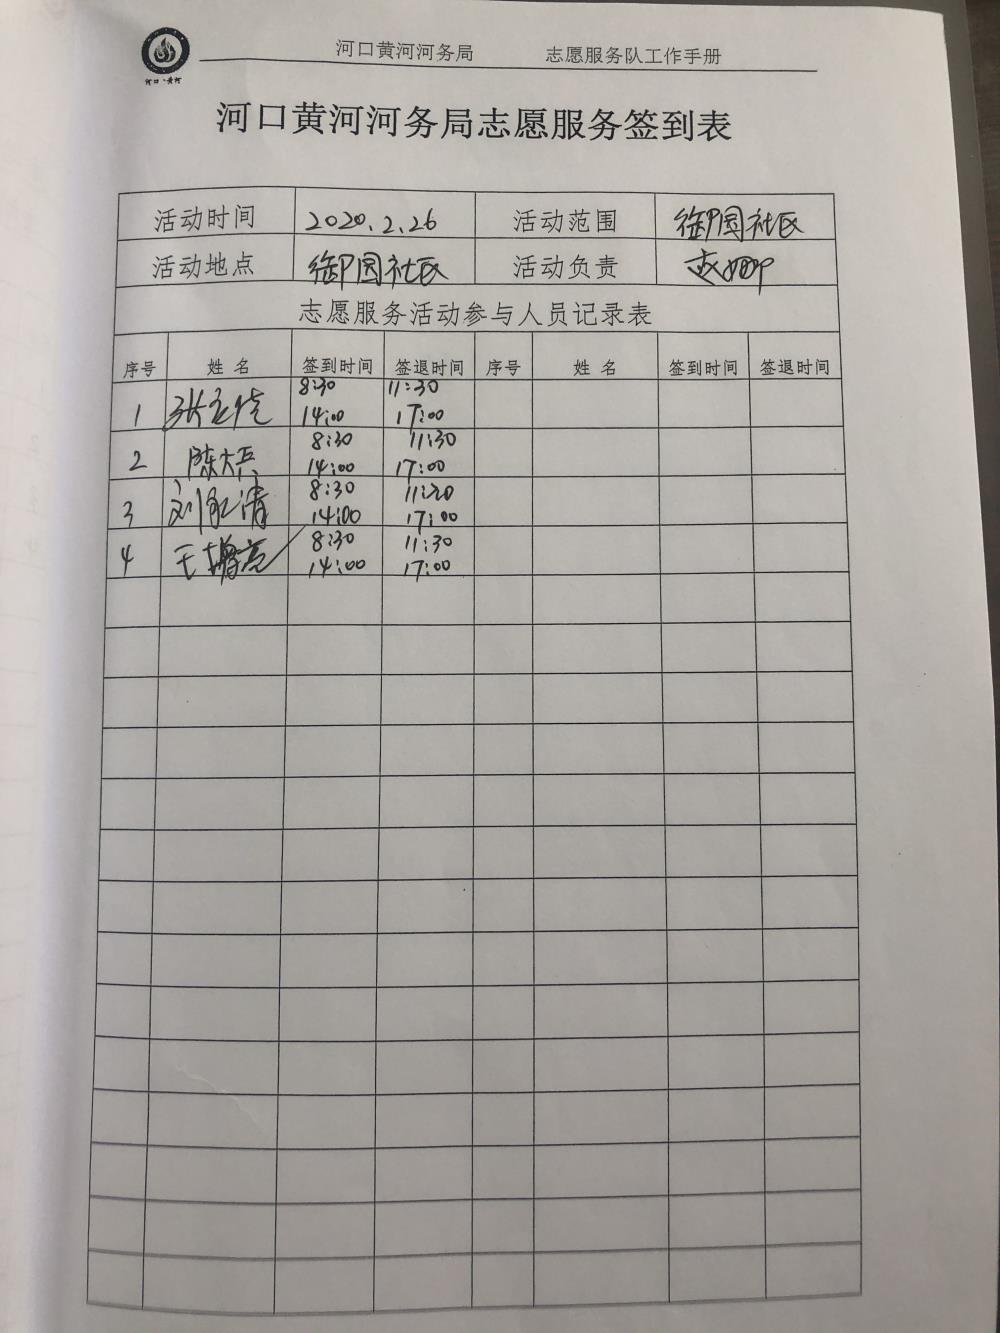 河口黄河河务局 志愿服务队工作手册
河口·黄河
河口黄河河务局志愿服务签到表
活动时间 2020.2.26 活动范围 御园社区
活动地点 御园社区 活动负责
志愿服务活动参与人员记录表
序号 姓名 签到时间 签退时间 序号 姓名 签到时间 签退时间
8:30 11:30
1 14:00 17:00
8:30 11:30
2 陈大兵 14:00 17:00
8:30 11:30
3 14:00 17:00
8:30 11:30
4 王增亮 14:00 17:00